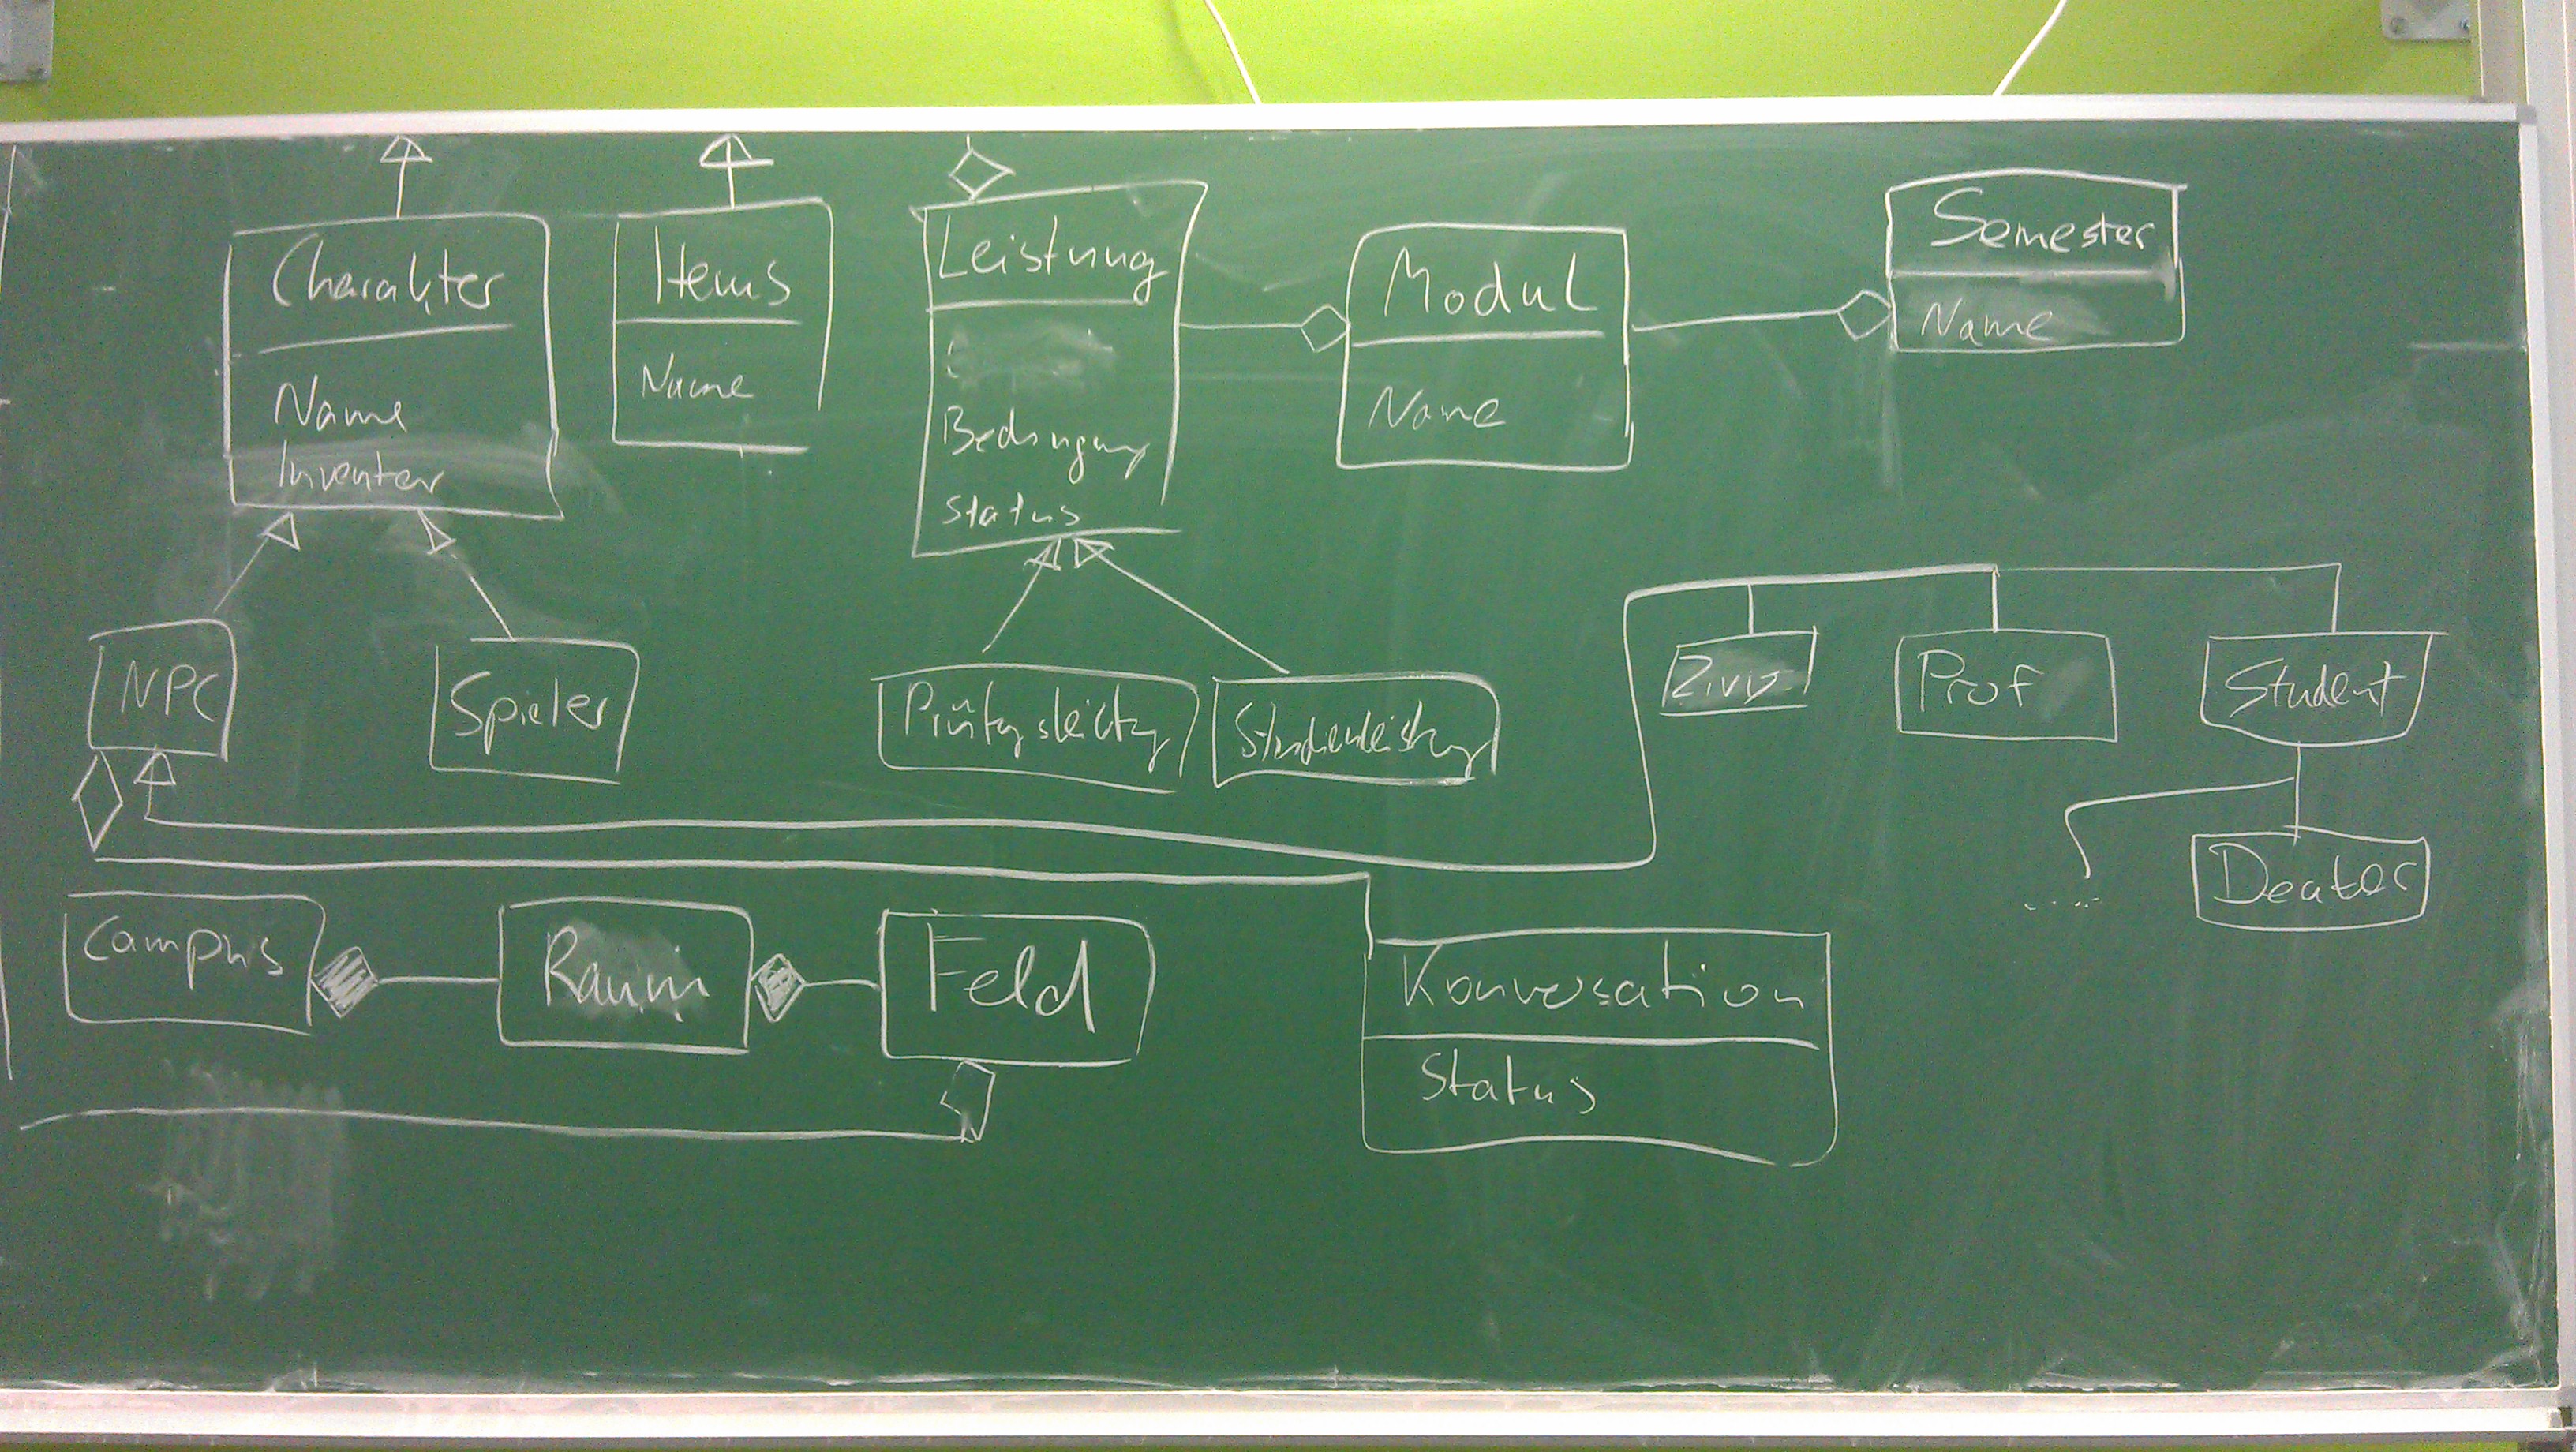 Charakter
Name
Inventar
Items
Name
Leistung
Bedingung
Status
Modul
Name
Semester
Name
NPC
Spieler
Prüfungsleistung
Studienleistung
Prof
Student
Campus
Raum
Feld
Konversation
Status